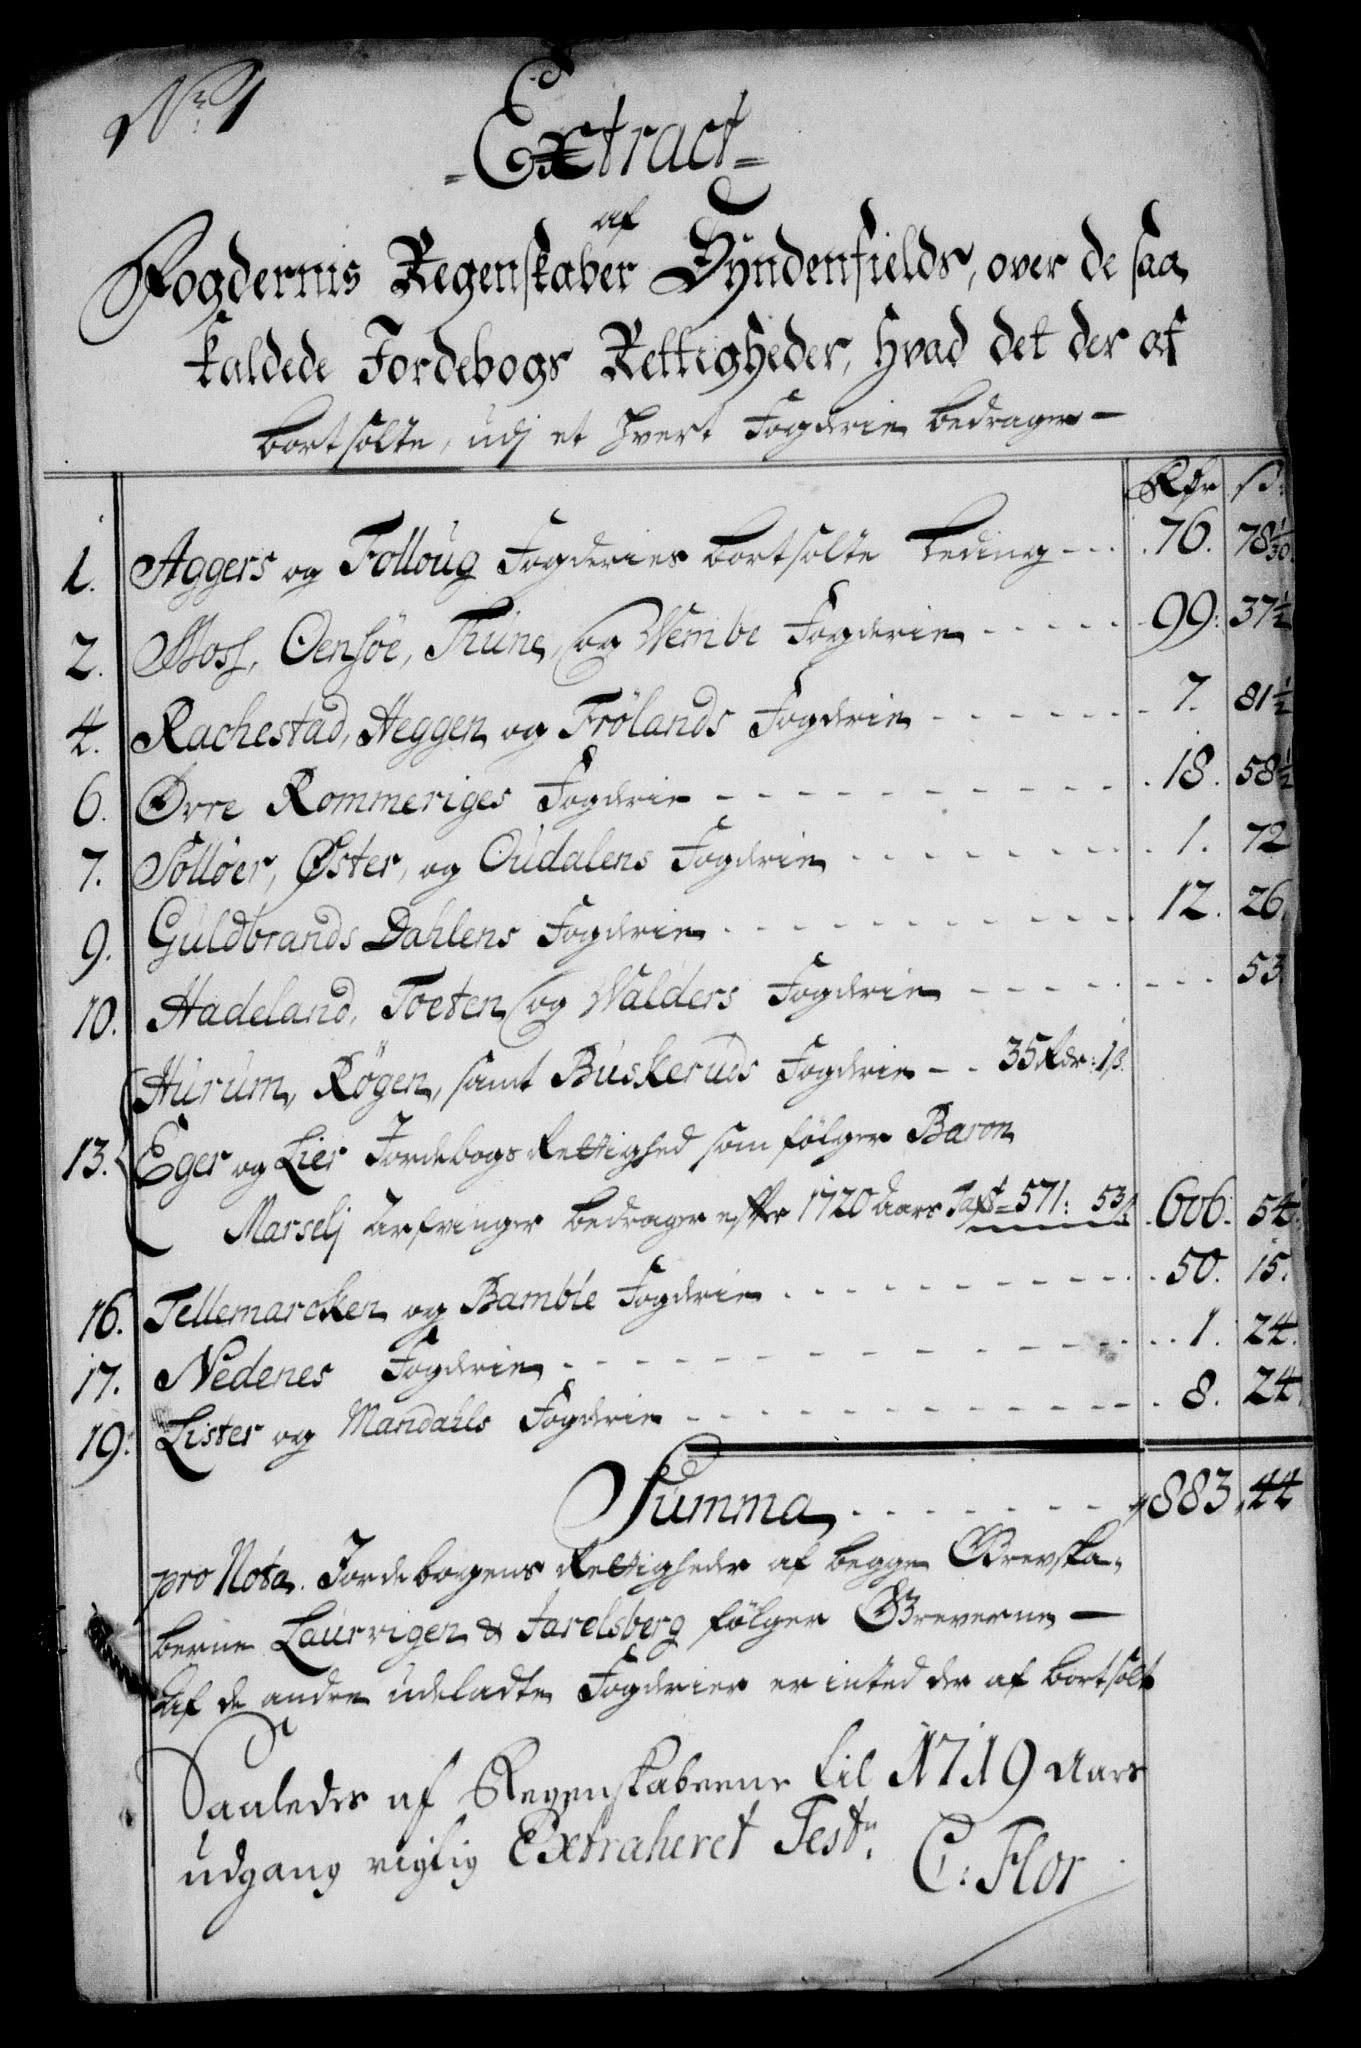 No. 1
Extract
af
Fogdernis Regenskaber Syndenfields, over de saa
kaldede Jordebogs Rettigheder, hvad det der af
bortsolte, udj et hvert Fogderie bedrager
Rdr ß:
1. Aggers og Folloug Fogderies bortsolte Leding - - . 76. 78 1/30.
2. Moss, Oensöe, Thüne, og Wembe Fogderie - - - - 99: 37 1/2
4. Rachestad, Heggen og Frölands Fogderie - - - - 7. 81 1/2
6. Övre Rommeriges Fogderie - - - - 18. 58 1/2
7. Sollöer, Øster, og Oudalens Fogderie - - - - 1. 72
9. Guldbrands Dahlens Fogderie - - - - 12. 26
10. Hadeland, Toeten og Walders Fogderie - - - - 53
Hürüm, Røgen, samt Büskeruds Fogderie - - 35 Rdr: 1 ß.
13. Eger og Lier Jordebogs Rettighed som følger Baron
Marselj Arfvinger bedrager efter 1720 Aars Taxt = 571: 53 ß 606. 54.
16. Tellemarcken og Bamble Fogderie - - - - 50. 15.
17. Nedenes Fogderie - - - - 1. 24.
19. Lister og Mandahls Fogderie - - - - 8. 24.
Summa - - - - 883, 44
pro Nota. Jordebogens Rettigheder af begge Grevska-
berne Laurvigen & Jarelsberg følger Greverne —
Af de andre udeladte Fogderier er inted der af bortsolt
Saaledes af Regenskaberne til 1719 Aars
udgang rigtig Extraheret Test:
C: Flor